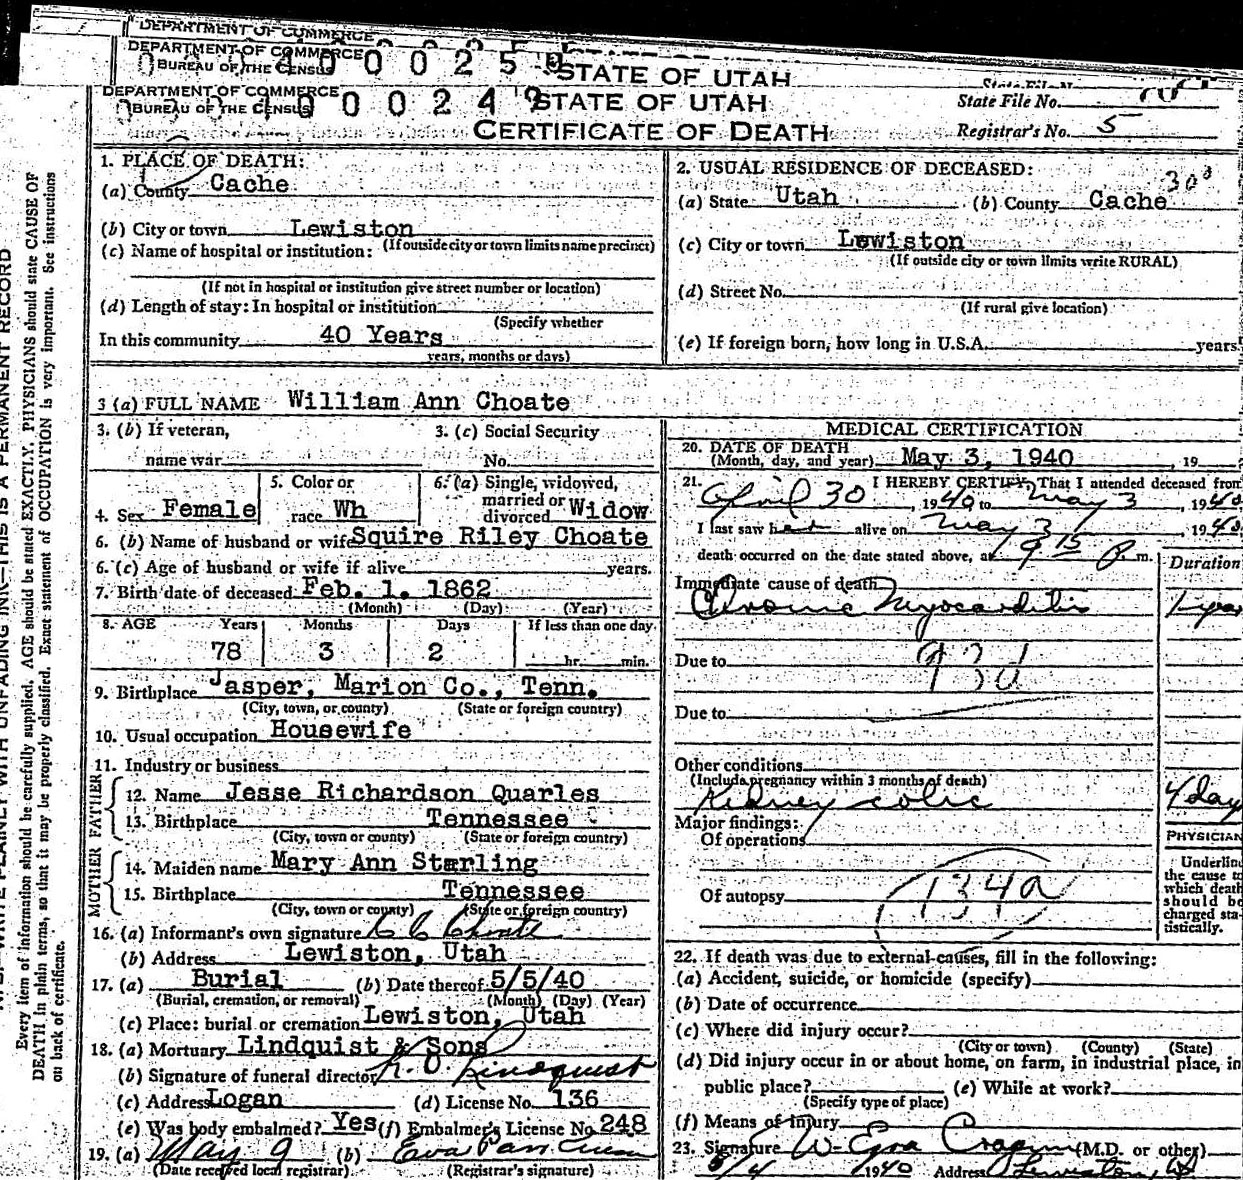 DEPARTMENT OF COMMERCE
DEPARTMENT OF COMMERCE
BUREAU OF THE CENSUS
STATE OF UTAH
DEPARTMENT OF COMMERCE
BUREAU OF THE CENSUS
STATE OF UTAH
State File No.
CERTIFICATE OF DEATH
Registrar's No. 5
1. PLACE OF DEATH:
(a) County Cache
(b) City or town Lewiston
(If outside city or town limits name precinct)
(c) Name of hospital or institution:
(If not in hospital or institution give street number or location)
(d) Length of stay: In hospital or institution
(Specify whether
In this community 40 Years
years, months or days)
2. USUAL RESIDENCE OF DECEASED:
(a) State Utah (b) County Cache
(c) City or town Lewiston
(If outside city or town limits write RURAL)
(d) Street No.
(If rural give location)
(e) If foreign born, how long in U.S.A. years.
3 (a) FULL NAME William Ann Choate
3. (b) If veteran, name war
3. (c) Social Security No.
4. Sex Female
5. Color or race Wh
6. (a) Single, widowed, married or divorced Widow
6. (b) Name of husband or wife Squire Riley Choate
6. (c) Age of husband or wife if alive years.
7. Birth date of deceased Feb. 1. 1862
(Month) (Day) (Year)
8. AGE Years Months Days If less than one day
78 3 2 hr. min.
9. Birthplace Jasper, Marion Co., Tenn.
(City, town, or county) (State or foreign country)
10. Usual occupation Housewife
11. Industry or business
FATHER
12. Name Jesse Richardson Quarles
13. Birthplace Tennessee
(City, town or county) (State or foreign country)
MOTHER
14. Maiden name Mary Ann Starling
15. Birthplace Tennessee
(City, town or county) (State or foreign country)
16. (a) Informant's own signature C C Choate
(b) Address Lewiston, Utah
17. (a) Burial (b) Date thereof 5/5/40
(Burial, cremation, or removal) (Month) (Day) (Year)
(c) Place: burial or cremation Lewiston, Utah
18. (a) Mortuary Lindquist & Sons
(b) Signature of funeral director Lindquist
(c) Address Logan (d) License No. 136
(e) Was body embalmed? Yes (f) Embalmer's License No. 248
19. (a) May 9 (b) Eva Parr
(Date received local registrar) (Registrar's signature)
MEDICAL CERTIFICATION
20. DATE OF DEATH
(Month, day, and year) May 3, 1940, 19
21. I HEREBY CERTIFY, That I attended deceased from
April 30, 1940 to May 3, 1940
I last saw her alive on May 3, 1940
death occurred on the date stated above, at 9 15 P. m.
Duration
Immediate cause of death
Chronic Myocarditis 1 year
Due to
Due to
Other conditions
(Include pregnancy within 3 months of death)
Kidney colic 4 day
Major findings:
Of operations
Of autopsy 134a
PHYSICIAN
Underline
the cause to
which death
should be
charged sta-
tistically.
22. If death was due to external causes, fill in the following:
(a) Accident, suicide, or homicide (specify)
(b) Date of occurrence
(c) Where did injury occur?
(City or town) (County) (State)
(d) Did injury occur in or about home, on farm, in industrial place, in
public place? (e) While at work?
(Specify type of place)
(f) Means of injury
23. Signature W. Ezra Cragun (M.D. or other)
5/4 1940 Address Lewiston, Ut
Every item of information should be carefully supplied. AGE should be stated EXACTLY. PHYSICIANS should state CAUSE OF
DEATH in plain terms, so that it may be properly classified. Exact statement of OCCUPATION is very important. See instructions
on back of certificate.
WRITE PLAINLY WITH UNFADING INK—THIS IS A PERMANENT RECORD